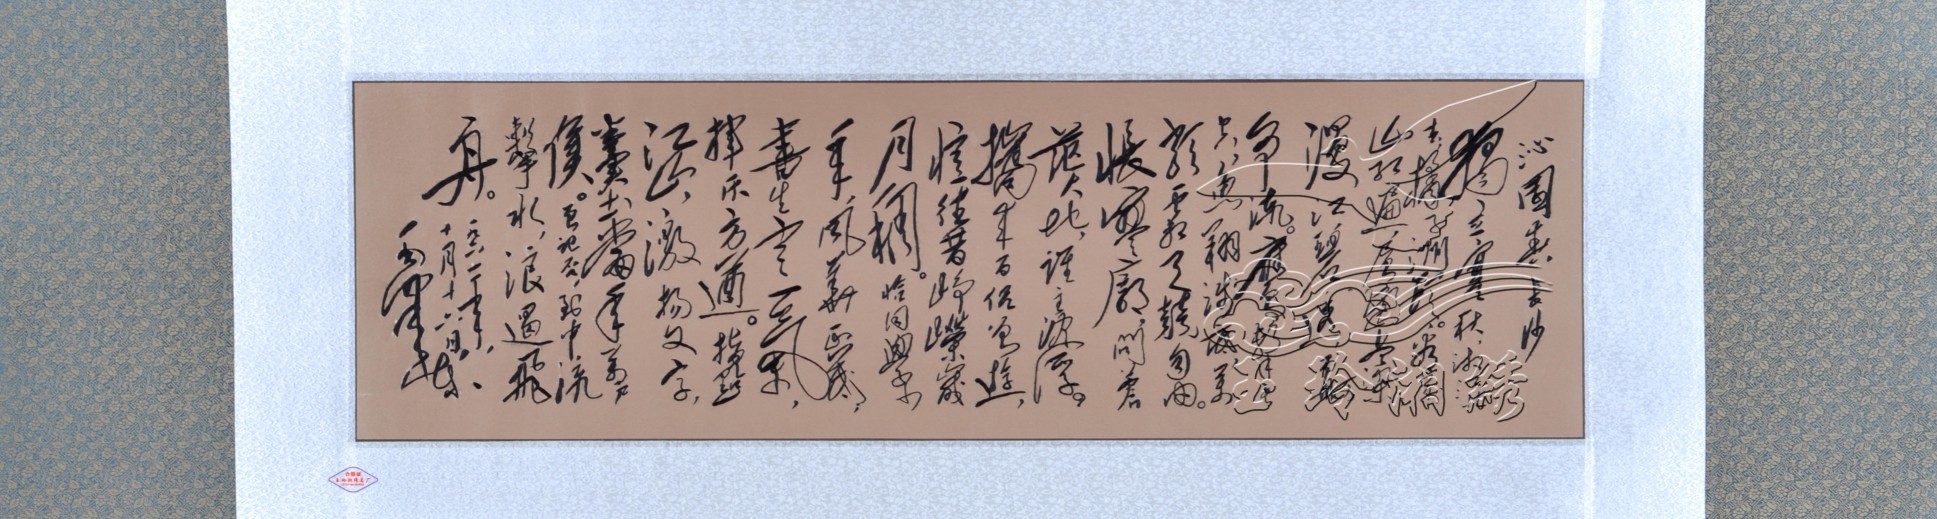 沁园春 长沙
独立寒秋湘江北
去橘子洲头。看万
山红遍层林尽染
漫江碧透百舸
争流。鹰击长空
鱼翔浅底万
类霜天竞自由。
怅寥廓,问苍
茫大地,谁主沉浮。
携来百侣曾游,
忆往昔峥嵘岁
月稠。恰同学少
年风华正茂,
书生意气,
挥斥方遒。指点
江山,激扬文字,
粪土当年万户
侯。曾记否,到中流
击水,浪遏飞
舟。
毛泽东
玉玲湘绣